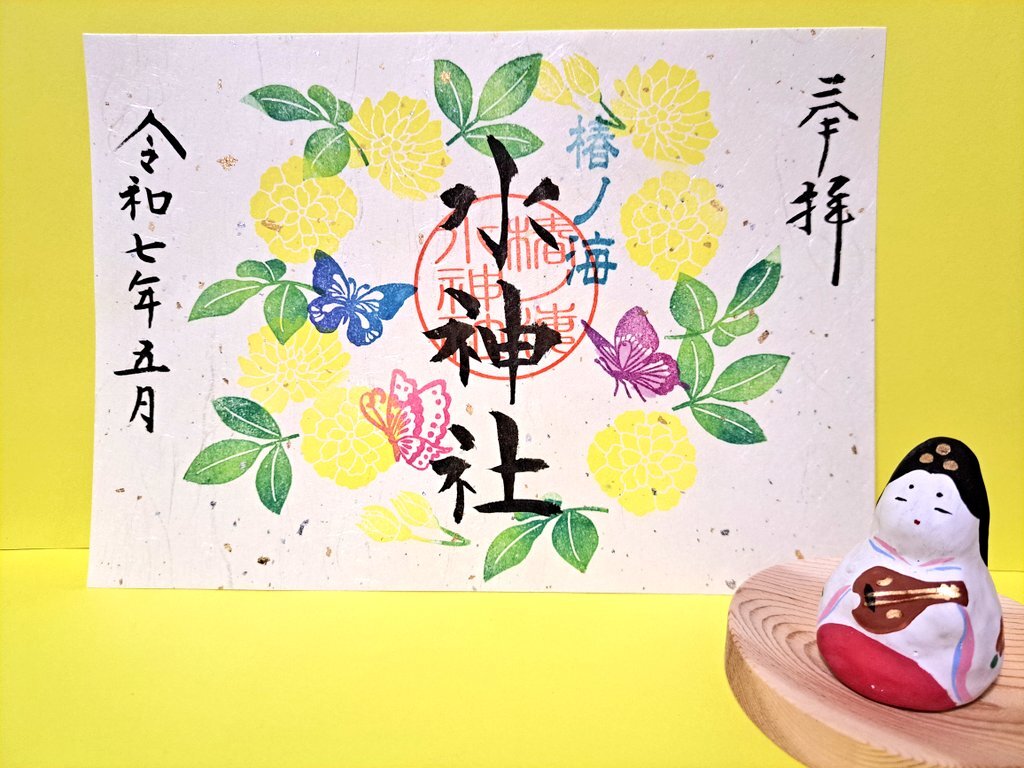 奉拝
椿ノ海
水神社
椿ノ海
水神社
令和七年五月